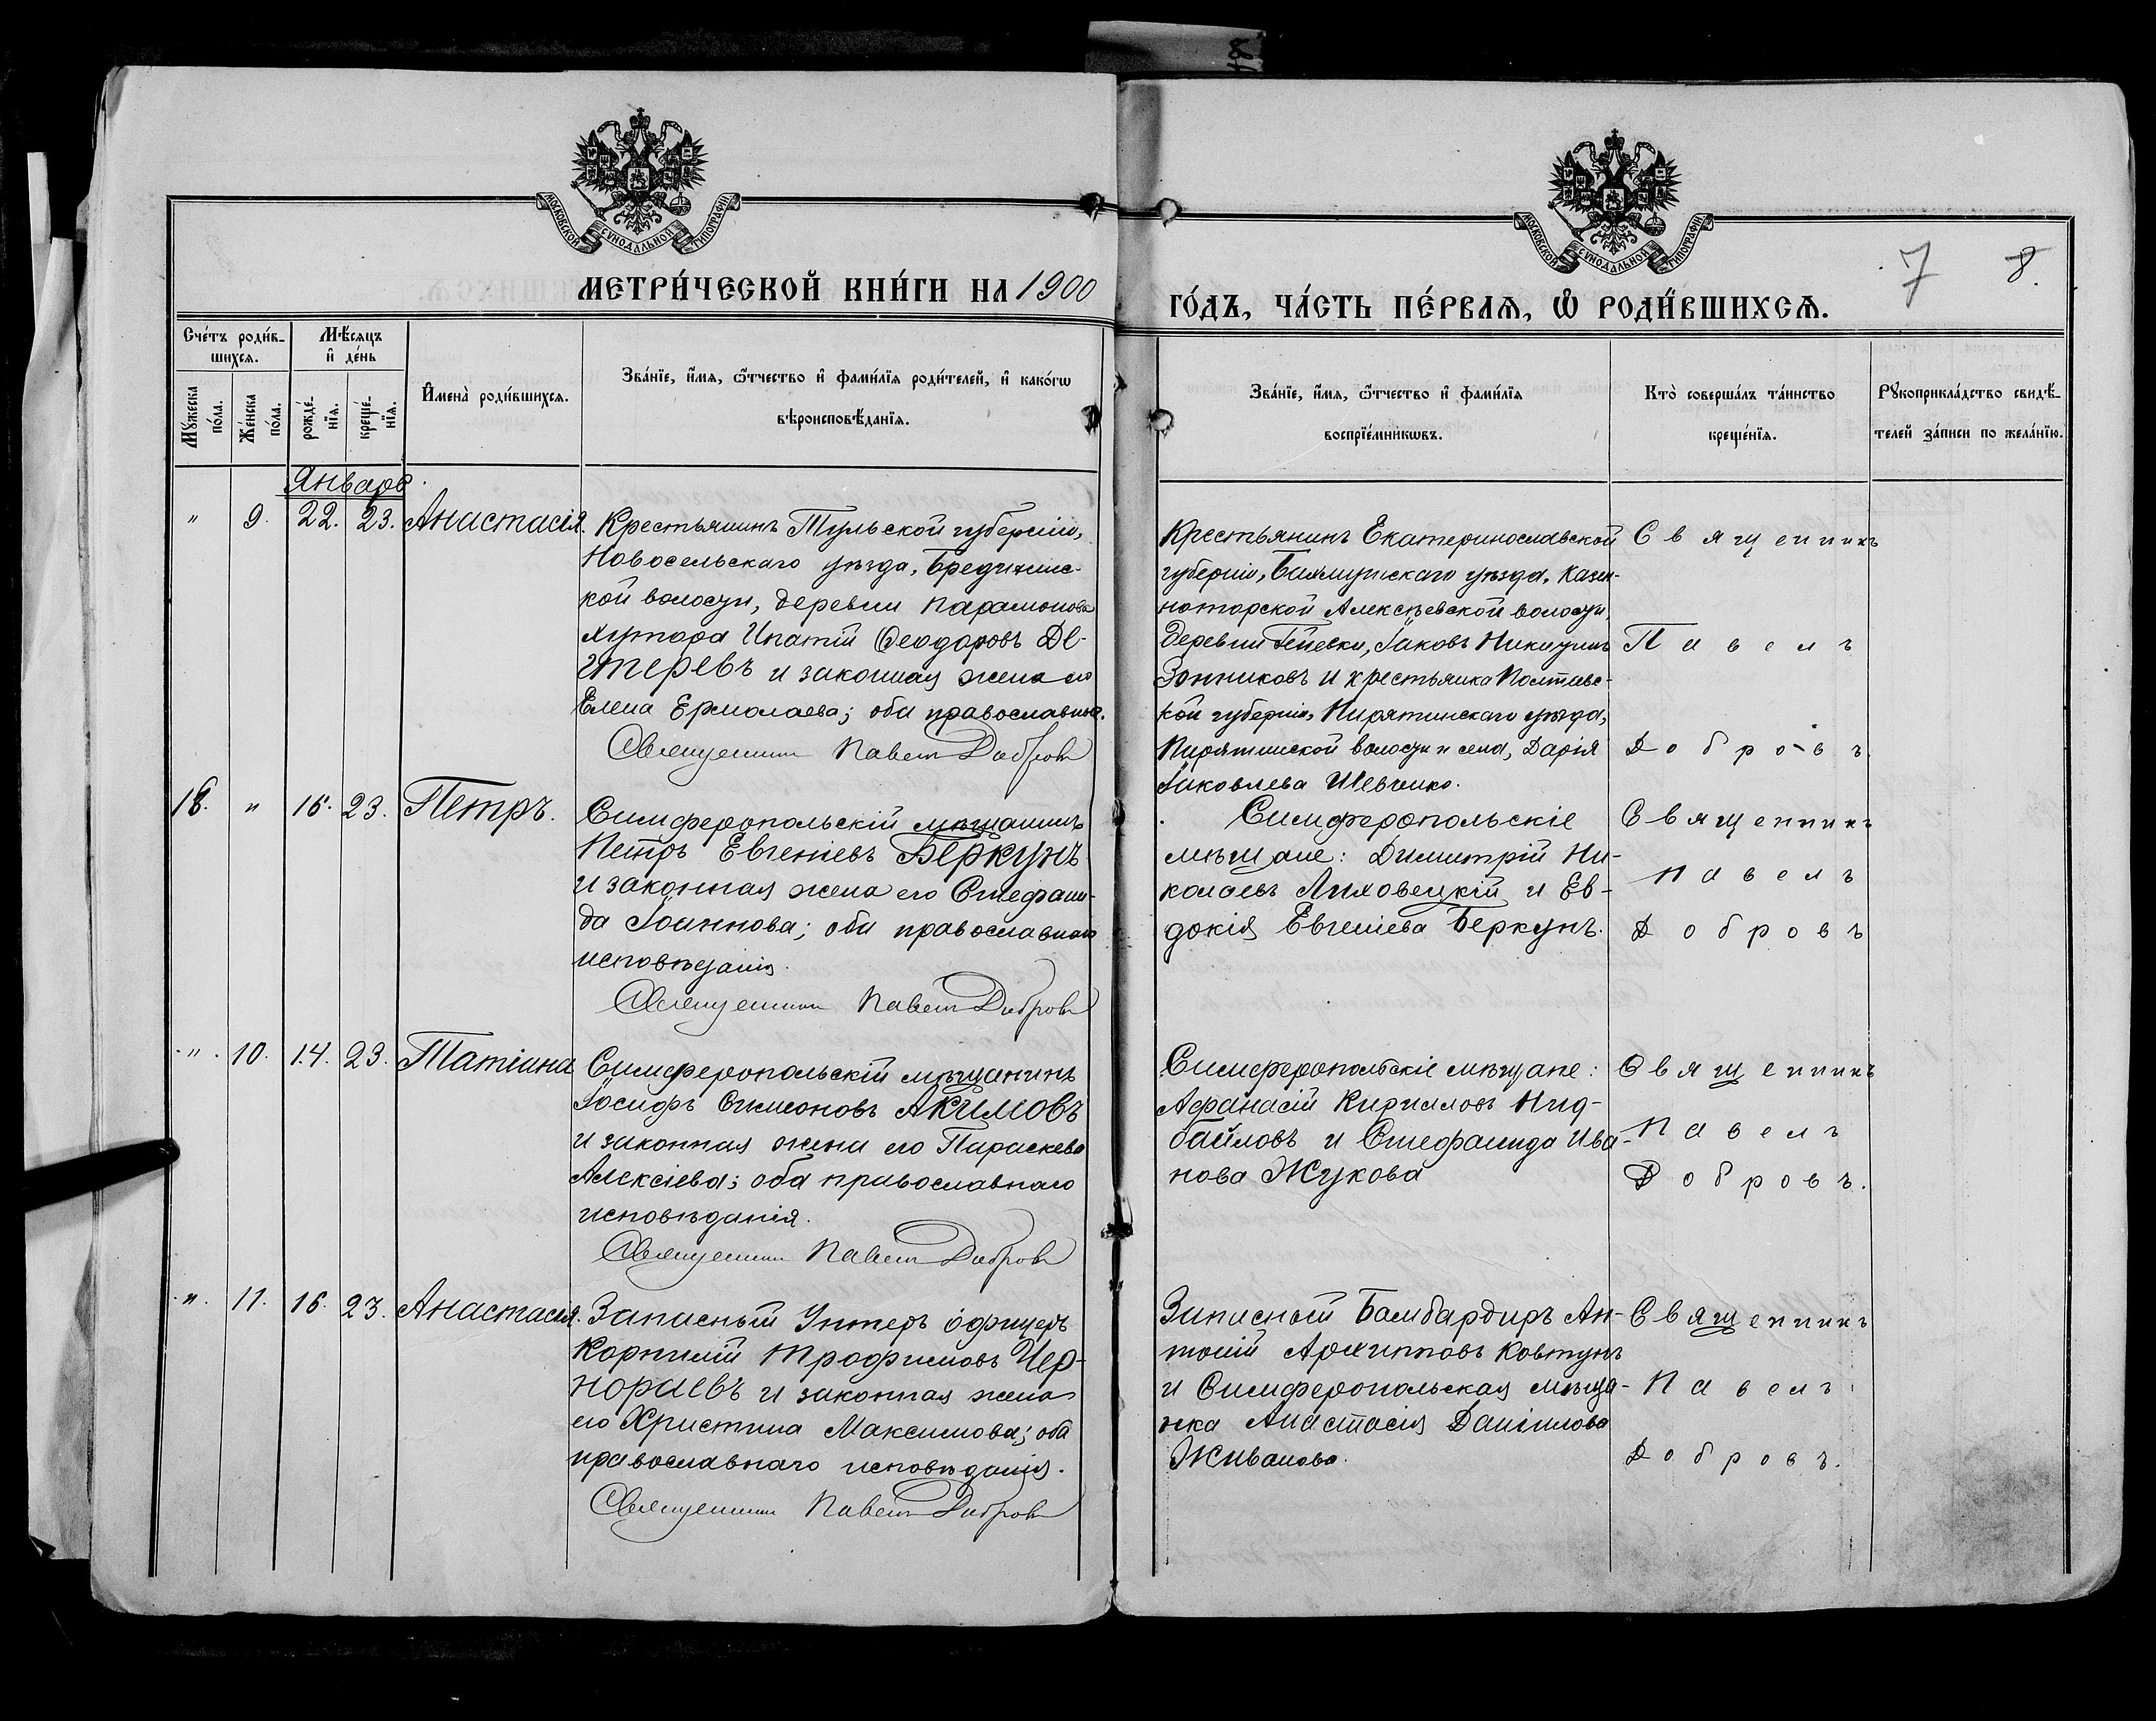 МОСКОВСКОЙ СѴНОДАЛЬНОЙ ТИПОГРАФІИ
МОСКОВСКОЙ СѴНОДАЛЬНОЙ ТИПОГРАФІИ
МЕТРИ́ЧЕСКОЙ КНИ́ГИ НА 1900
ГО́ДЪ, ЧА́СТЬ ПЕ́РВАѦ, Ѽ РОДИ́ВШИХСѦ.
7 8.
Сче́тъ роди́в-
шихсѧ.
Мꙋжеска по́ла.
Же́нска по́ла.
Мѣ́сѧцъ
и҆ де́нь
рожде́-
нїѧ.
креще́-
нїѧ.
И҆мена̀ роди́вшихсѧ.
Зва́нїе, и҆́мѧ, ѻ҆́тчество и҆ фами́лїѧ роди́телей, и҆ како́гѡ
вѣроисповѣ́данїѧ.
Зва́нїе, и҆́мѧ, ѻ҆́тчество и҆ фами́лїѧ
воспрїе́мникѡвъ.
Кто̀ соверша́лъ та́инство
креще́нїѧ.
Рꙋкоприкла́дство свидѣ́-
телей за́писи по жела́нїю.
Январь.
" 9. 22. 23. Анастасія.
Крестьянинъ Тульской губерніи,
Новосельскаго уѣзда,
кой волости, деревни Парамонова
хутора Ипатій Ѳеодоровъ Де-
гтеревъ и законная жена его
Елена Ермолаева; оба православные.
Священникъ Павелъ Добровъ
Крестьянинъ Екатеринославской
губерніи, Бахмутскаго уѣзда,
Алексѣевской волости,
деревни Іаковъ Никитинъ
и крестьянка Полтавс-
кой губерніи, Пирятинскаго уѣзда,
Пирятинской волости и села, Дарія
Іаковлева Шевченко.
Священникъ
Павелъ
Добровъ.
18. " 15. 23. Петръ.
Симферопольскій мѣщанинъ
Петръ Евгеніевъ Беркунъ
и законная жена его Стефани-
да Іоаннова; оба православнаго
исповѣданія.
Священникъ Павелъ Добровъ
Симферопольскіе
мѣщане: Димитрій Ни-
колаевъ Лиховецкій и Ев-
докія Евгеніева Беркунъ.
Священникъ
Павелъ
Добровъ
" 10. 14. 23. Татіана
Симферопольскій мѣщанинъ
Іосифъ Симеоновъ Акимовъ
и законная жена его Параскева
Алексіева; оба православнаго
исповѣданія.
Священникъ Павелъ Добровъ
Симферопольскіе мѣщане:
Афанасій Кирилловъ Нид-
байловъ и Стефанида Ива-
нова Жукова
Священникъ
Павелъ
Добровъ.
" 11. 16. 23. Анастасія.
Запасный Унтеръ офицеръ
Корнилій Трофимовъ Чер-
нораевъ и законная жена
его Христина Максимова; оба
православнаго исповѣданія.
Священникъ Павелъ Добровъ
Запасный Бомбардиръ Ан-
тоній Архиповъ Ковтунъ
и Симферопольская мѣща-
нка Анастасія Даніилова
Живанова.
Священникъ
Павелъ
Добровъ.